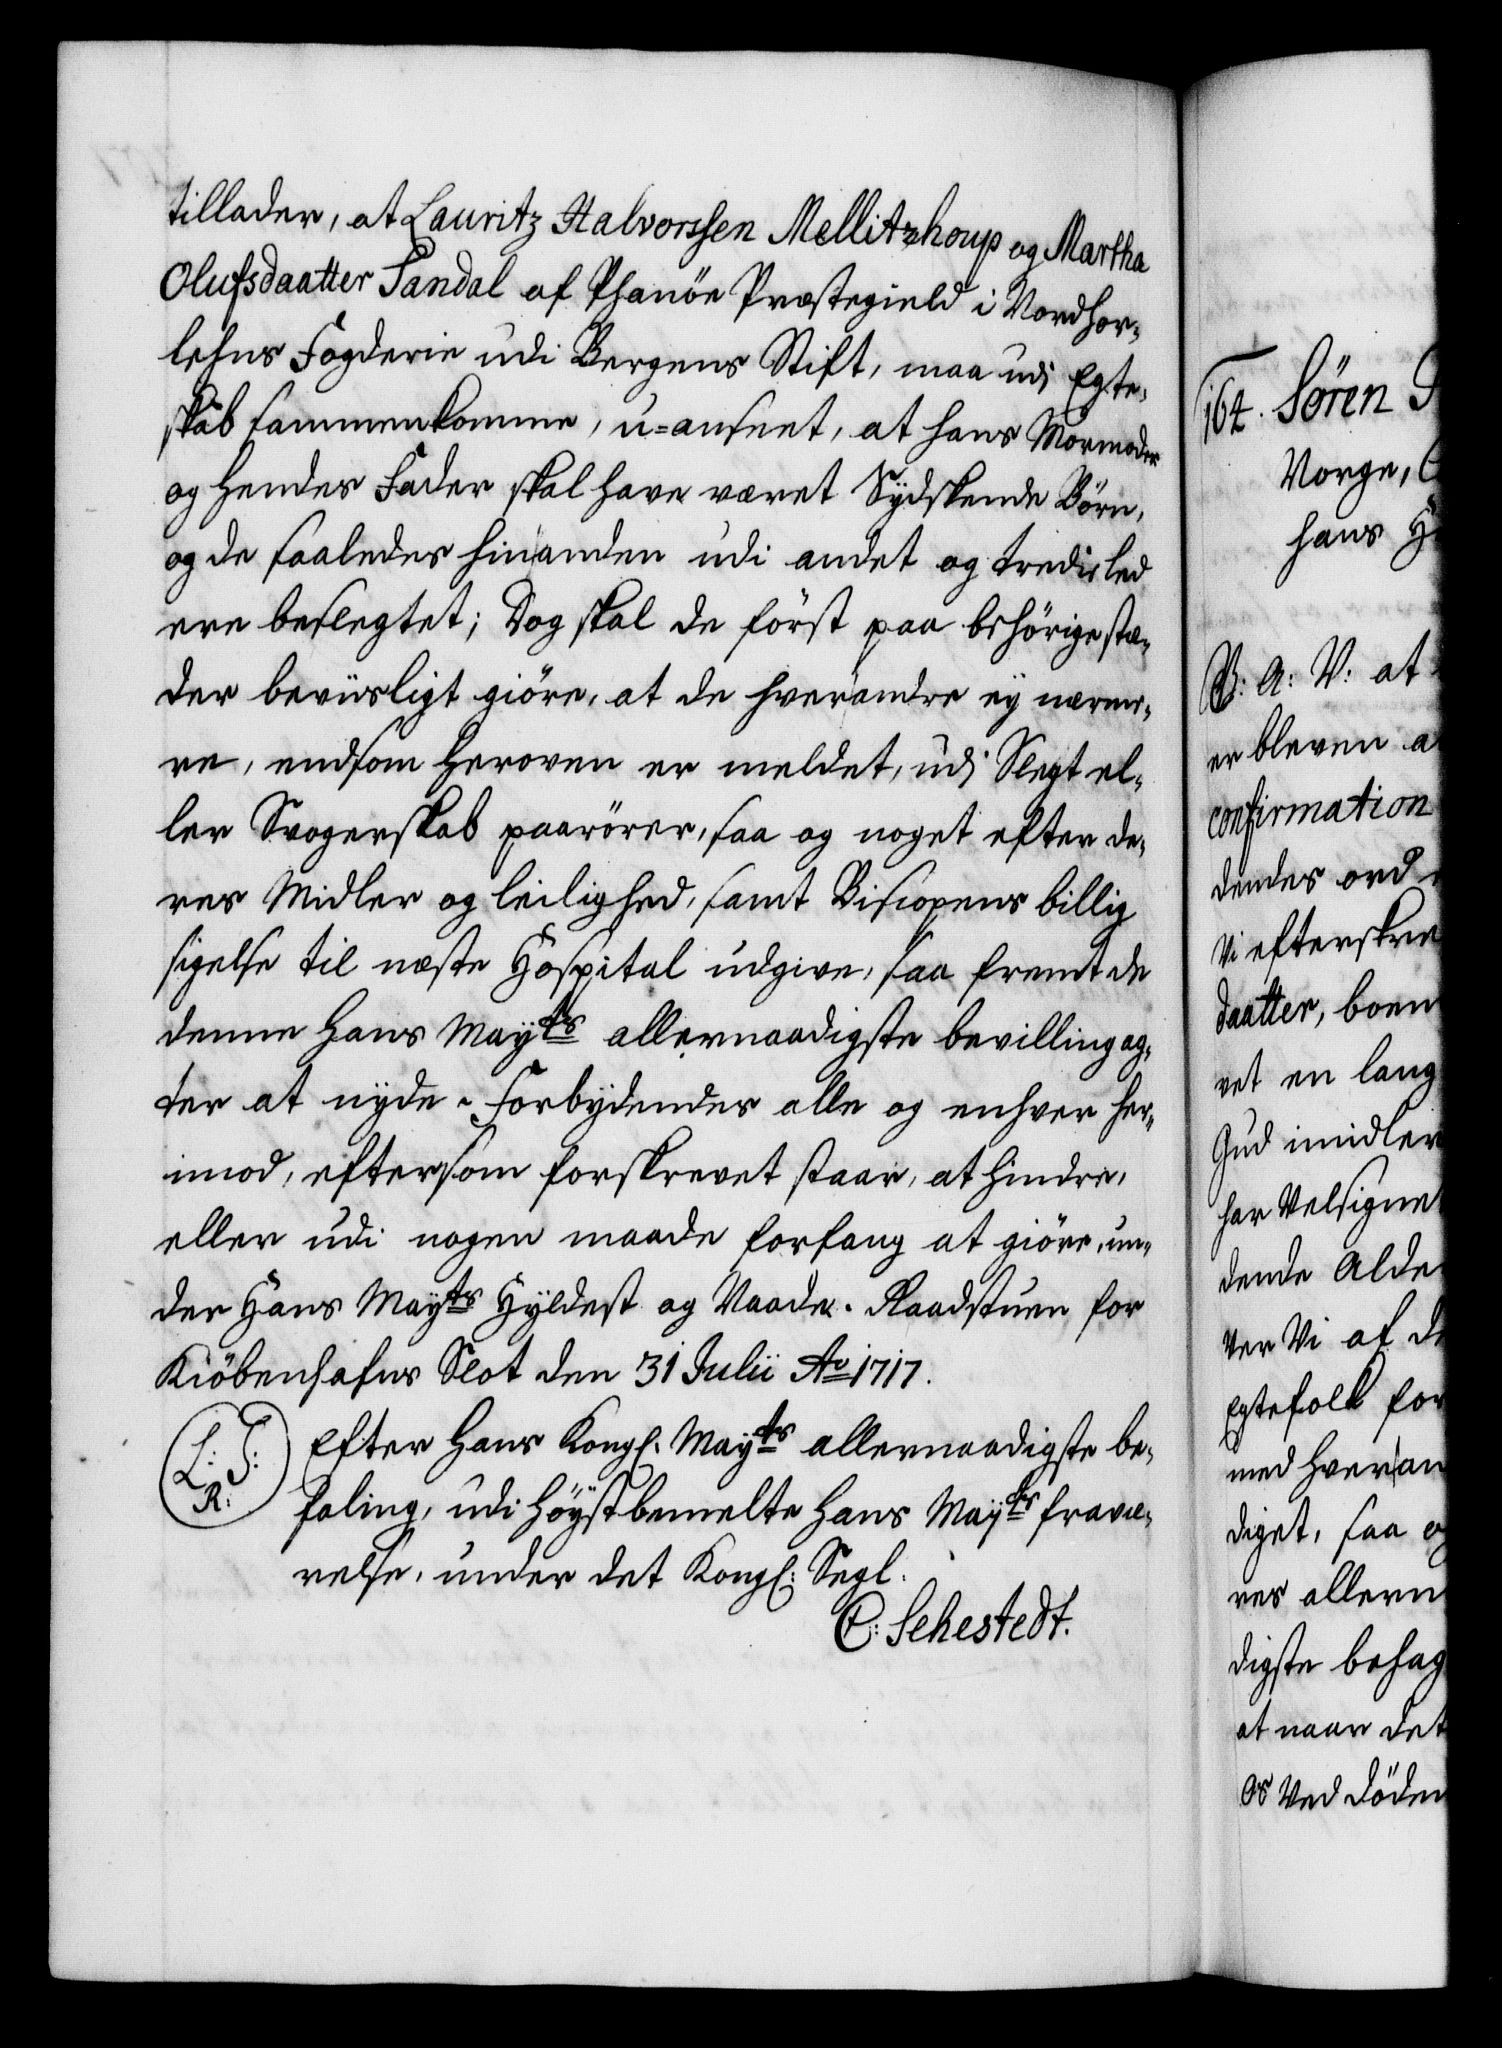 tillader, at Lauritz Halvorssen Mellitzhoup og Martha
Olufsdaatter Sandal af Phanöe Præstegield i Nordhor-
lehns Fogderie udi Bergens Stift, maa udj Egte-
skab sammenkomme, u=anseet, at hans Mormoder
og hendes Fader skal have været Sydskende Börn,
og de saaledes hinanden udi andet og tredie led
ere beslegtet; Dog skal de först paa behörige stæ-
der beviisligt giöre, at de hverandre ey nærme-
re, end som heroven er meldet, udj Slegt el-
ler Svogerskab paarörer, saa og noget efter de-
res Midler og leilighed, samt Biscopens billig
sigelse til næste Hospital udgive, saa fremt de
denne Hans Mayts allernaadigste bevilling ag-
ter at nyde. Forbydendes alle og enhver her-
imod, eftersom forskrevet staar, at hindre,
eller udi nogen maade forfang at giöre, un-
der Hans Mayts Hyldest og Naade. Raadstuen for
Kiöbenhafns Slot den 31 Julii Ao 1717.
L: S:
R:
Efter Hans Kongl. Mayts allernaadigste be-
faling, udi Höystbemelte Hans Mayts fravæ-
relse, under det Kongl: Segl.
C: Sehestedt.
164. Sören
Norge,
hans
V: A: V: at
er bleven a
confirmation
dendes ord
Vi efterskre
daatter, boen
vet en lang
Gud imidler
har Velsigne
dende Alde
ver Vi af de
Egtefolk for
med hveran
diget, saa og
res allern
digste behag
at naar det
os ved döden